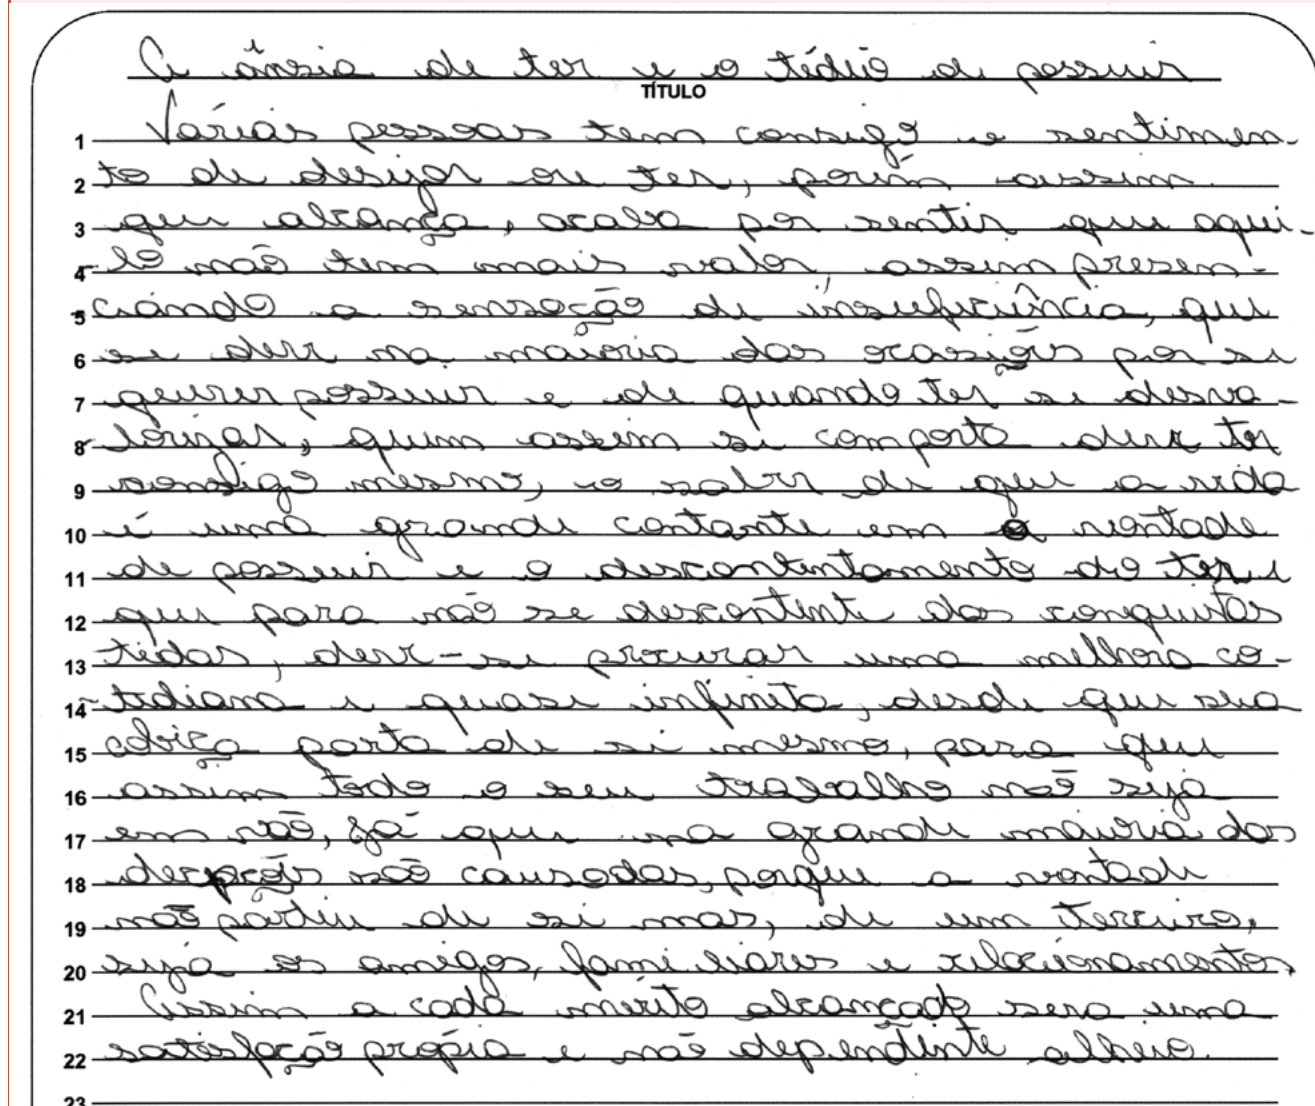 A ânsia de ter e o tédio de possuir
TÍTULO
1 Várias pessoas tem consigo o sentimen-
2 to de desejar ou ter, porém assim
3 que alcança, acaba por sentir que aqui-
4 lo não tem mais valor, assim presen-
5 ciando a sensação de insuficiência, que
6 se deve na maioria das ocasiões por se
7 querer possuir e de quando ter se desva-
8 lorizar, quem assim se comporta deve ter
9 consigo mesmo, o saber de que a vida
10 é uma grande contante em a vontade
11 de possuir e o descontentamento do ter e
12 que para não se descontente das conquitas
13 tidas, deve-se procurar uma melhora co-
14 tidiana e quase infinita, desde que sua
15 cobiça parta de si mesmo, para que
16 assim todo o seu trabalho não seja
17 em vão, já que na grande maioria das
18 decpções são causadas, porque a vontade
19 não partiu de si mas, de um terceiro,
20 seja os amigos, familiares e relacionamentos,
21 Assim a cada mérito alcançado sera uma
22 satisfação própia e não dependente alheio.
23